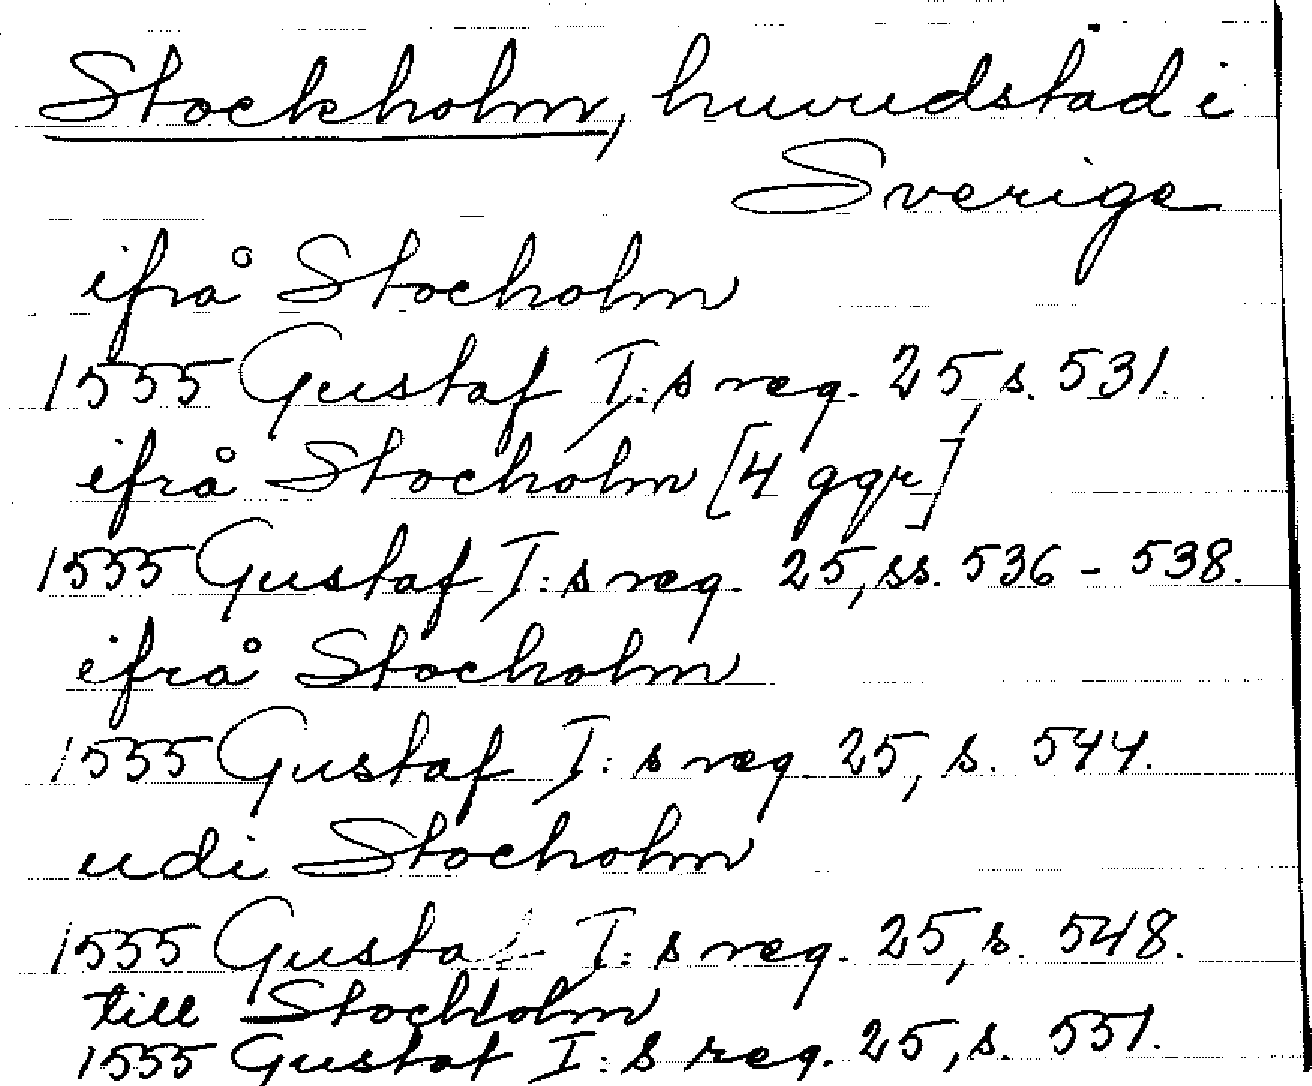 Stockholm, huvudstad i
Sverige
ifrå Stocholm
1555 Gustaf I:s reg. 25, s. 531.
ifrå Stocholm [4 ggr]
1555 Gustaf I:s reg. 25, ss. 536 - 538.
ifrå Stocholm
1555 Gustaf I:s reg. 25, s. 544.
udi Stocholm
1555 Gustaf I:s reg. 25, s. 548.
till Stocholm
1555 Gustaf I:s reg. 25, s. 551.